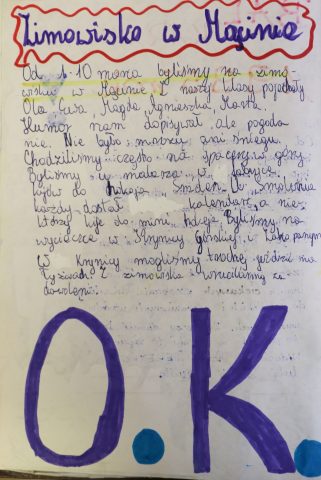 Zimowisko w Mąginie
Od 1-10 marca byliśmy na zimo
wisku w Mąginie. Z naszej klasy pojechały
Ola, Ewa, Magda, Agnieszka, Marta.
Humor nam dopisywał ale pogoda
nie. Nie było mrozu ani śniegu.
Chodziliśmy często na spacery w góry.
Byliśmy w
do hokeja
każdy dostał kalendarz, a nie
którzy kije do mini hokeja. Byliśmy na
wycieczce w Krynicy Górskiej i Zakopanym
W Krynicy mogliśmy trochę jeździć na
łyżwach. Z zimowiska wróciliśmy za
dowoleni.
O.K.